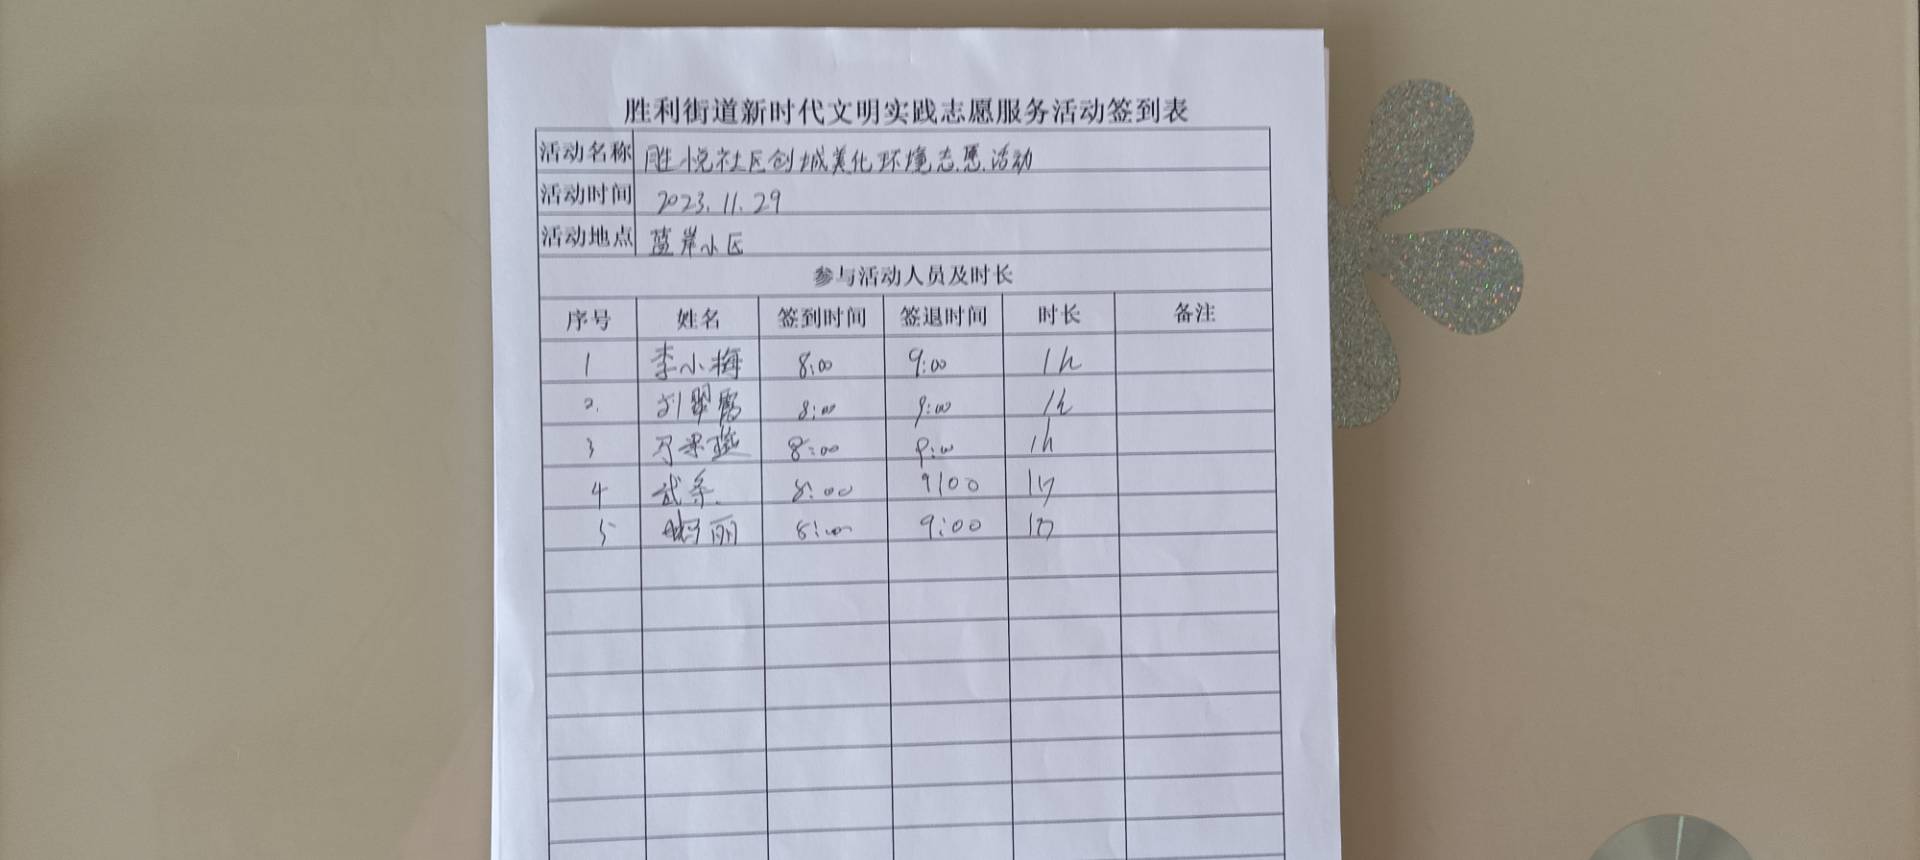 胜利街道新时代文明实践志愿服务活动签到表
活动名称 胜悦社区创城美化环境志愿活动
活动时间 2023.11.29
活动地点 蓝岸小区
参与活动人员及时长
序号 姓名 签到时间 签退时间 时长 备注
1 李小梅 8:00 9:00 1h
2. 刘翠霞 8:00 9:00 1h
3 8:00 9:00 1h
4 8:00 9:00 1h
5 丽 8:00 9:00 1h